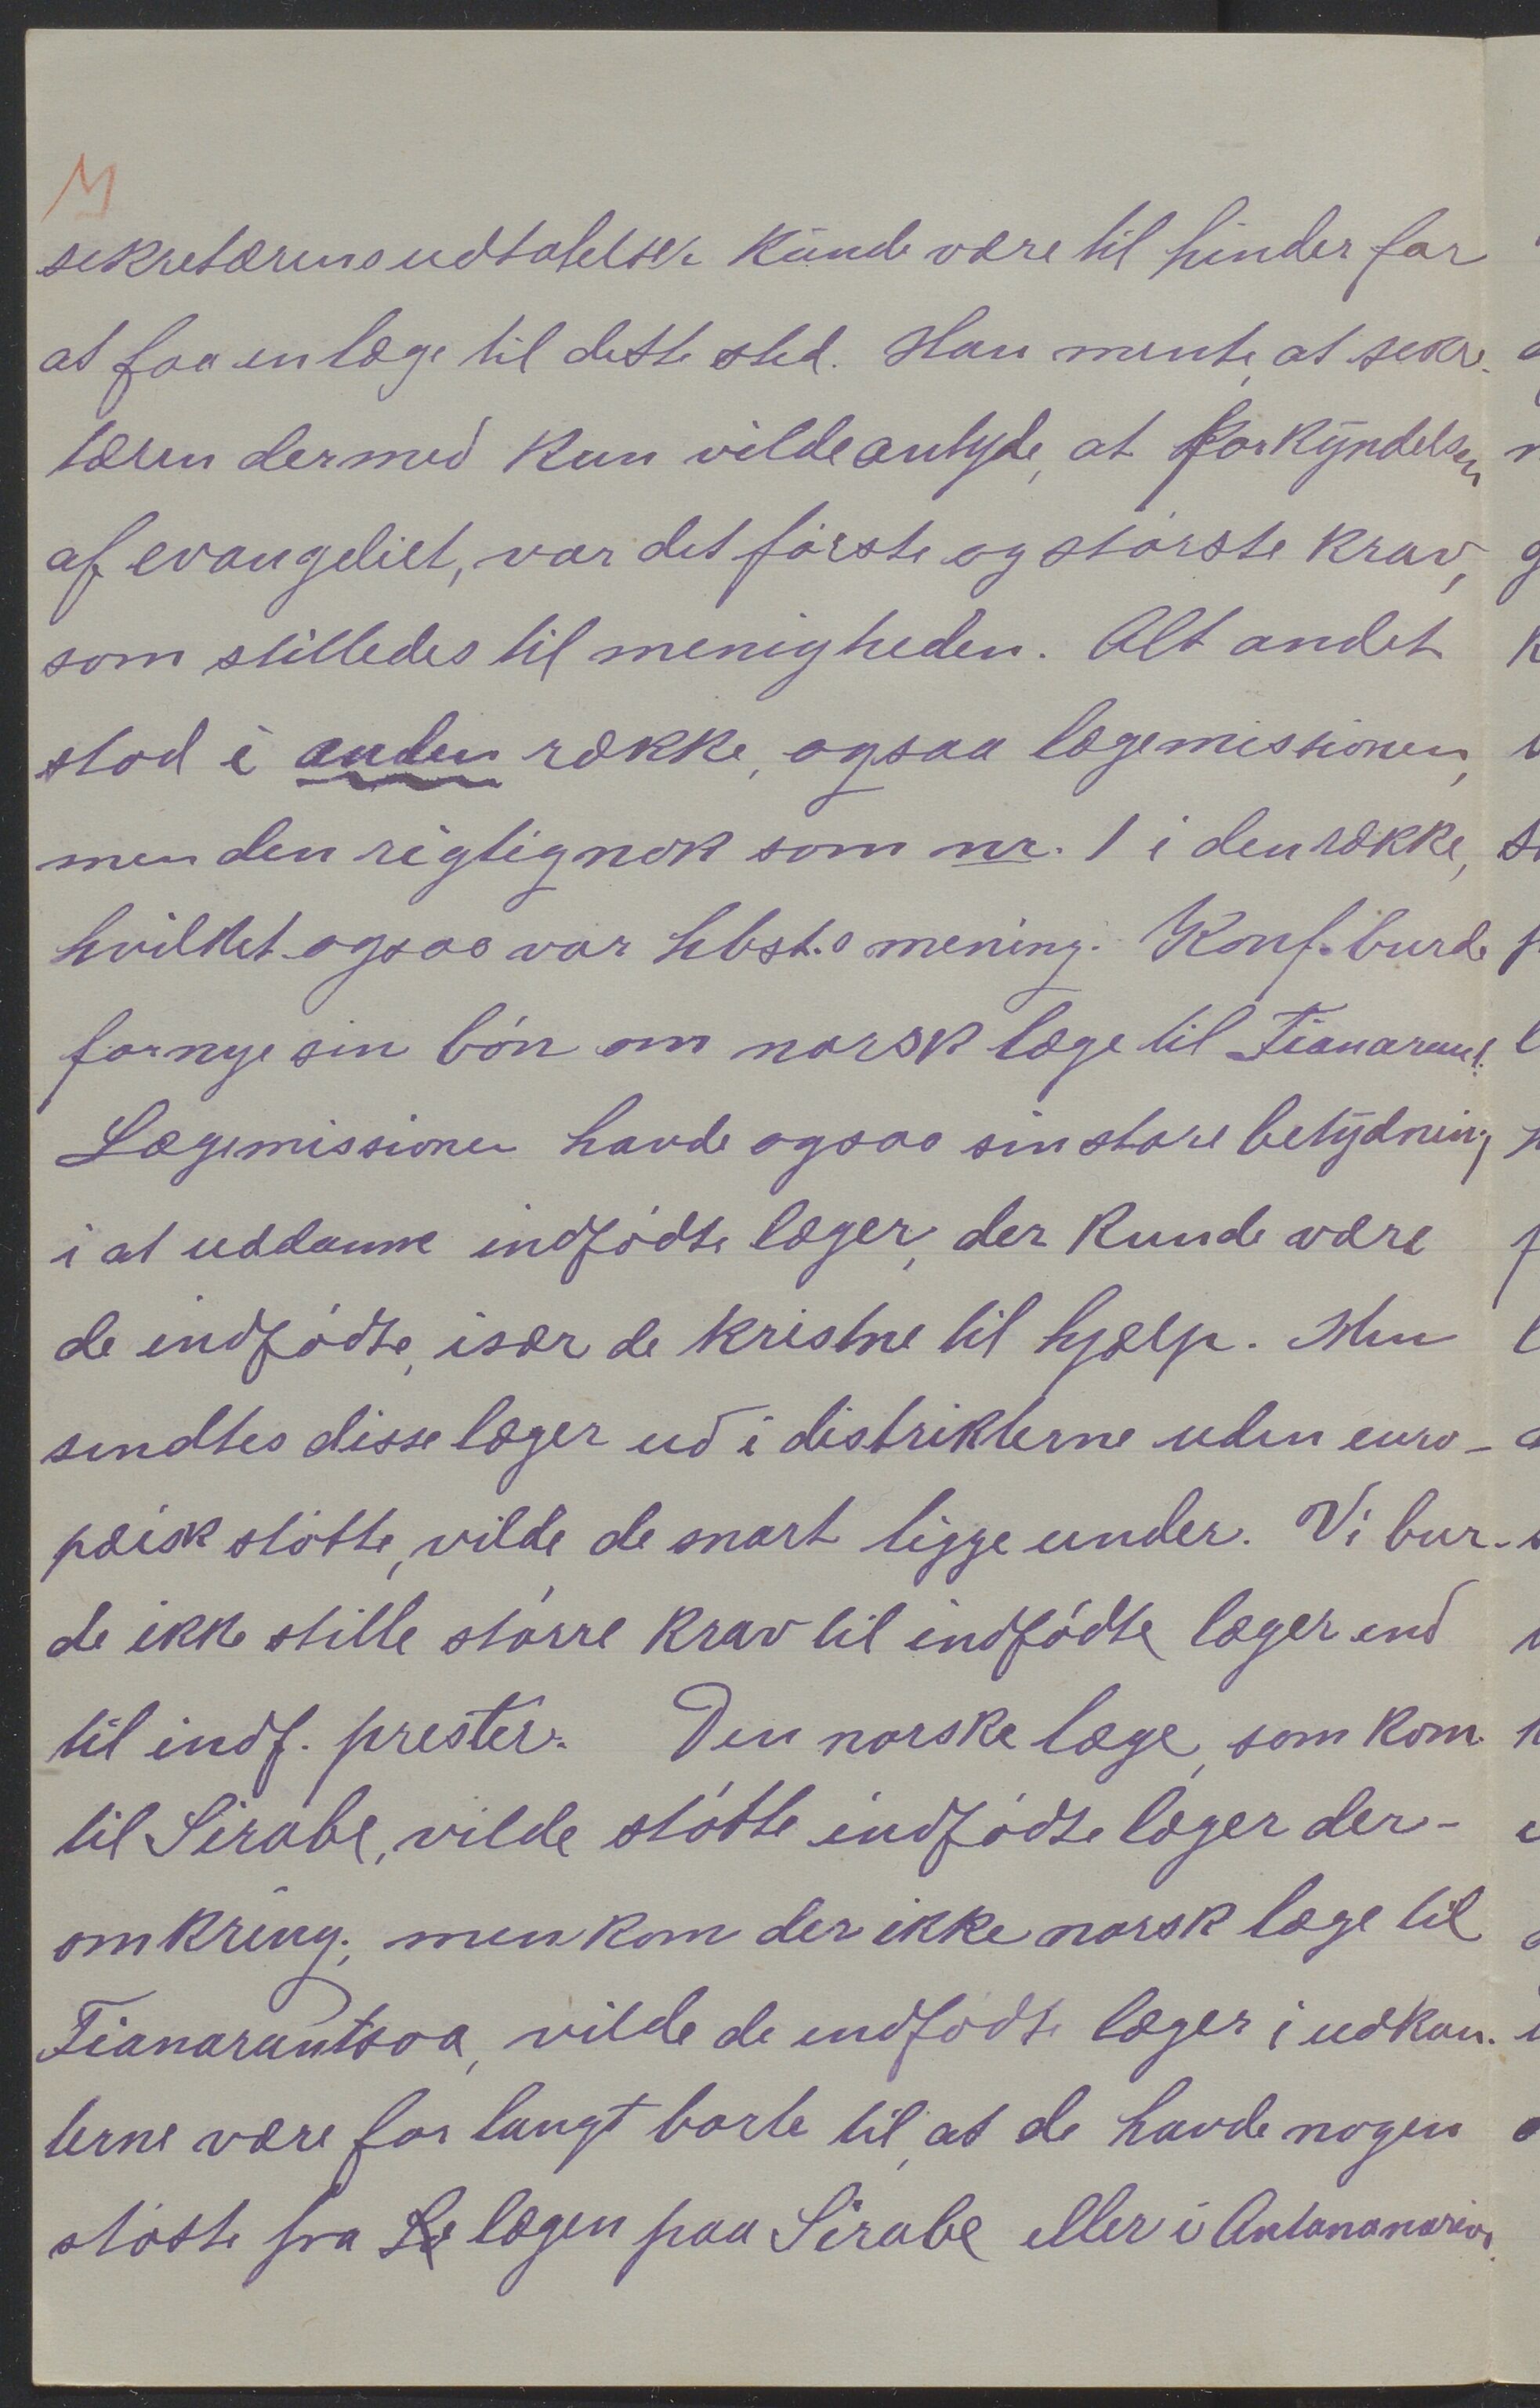 sekretærens udtalelser kunde være til hinder for
at faa en læge til dette sted. Han mente, at sekre-
tæren dermed kun vilde antyde, at forkyndelsen
af evangeliet, var det første og største krav,
som stilledes til menigheden. Alt andet
stod i anden række, ogsaa lægemissionen,
men den rigtignok som nr. 1 i den række,
hvilket ogsaa var hbst.s mening. Konf. burde
fornye sin bøn om norsk læge til Fianarant.
Lægemissionen havde ogsaa sin store betydning
i at uddanne indfødte læger, der kunde være
de indfødte, især de kristne til hjælp. Men
sendtes disse læger ud i distrikterne uden euro-
pæisk støtte, vilde de snart ligge under. Vi bur-
de ikke stille større krav til indfødte læger end
til indf. prester. Den norske læge, som kom
til Sirabe, vilde støtte indfødte læger der-
omkring; men kom der ikke norsk læge til
Fianarantsoa, vilde de indfødte læger i udkan-
terne være for langt borte til, at de havde nogen
støtte fra lægen paa Sirabe eller i Antananarivo.